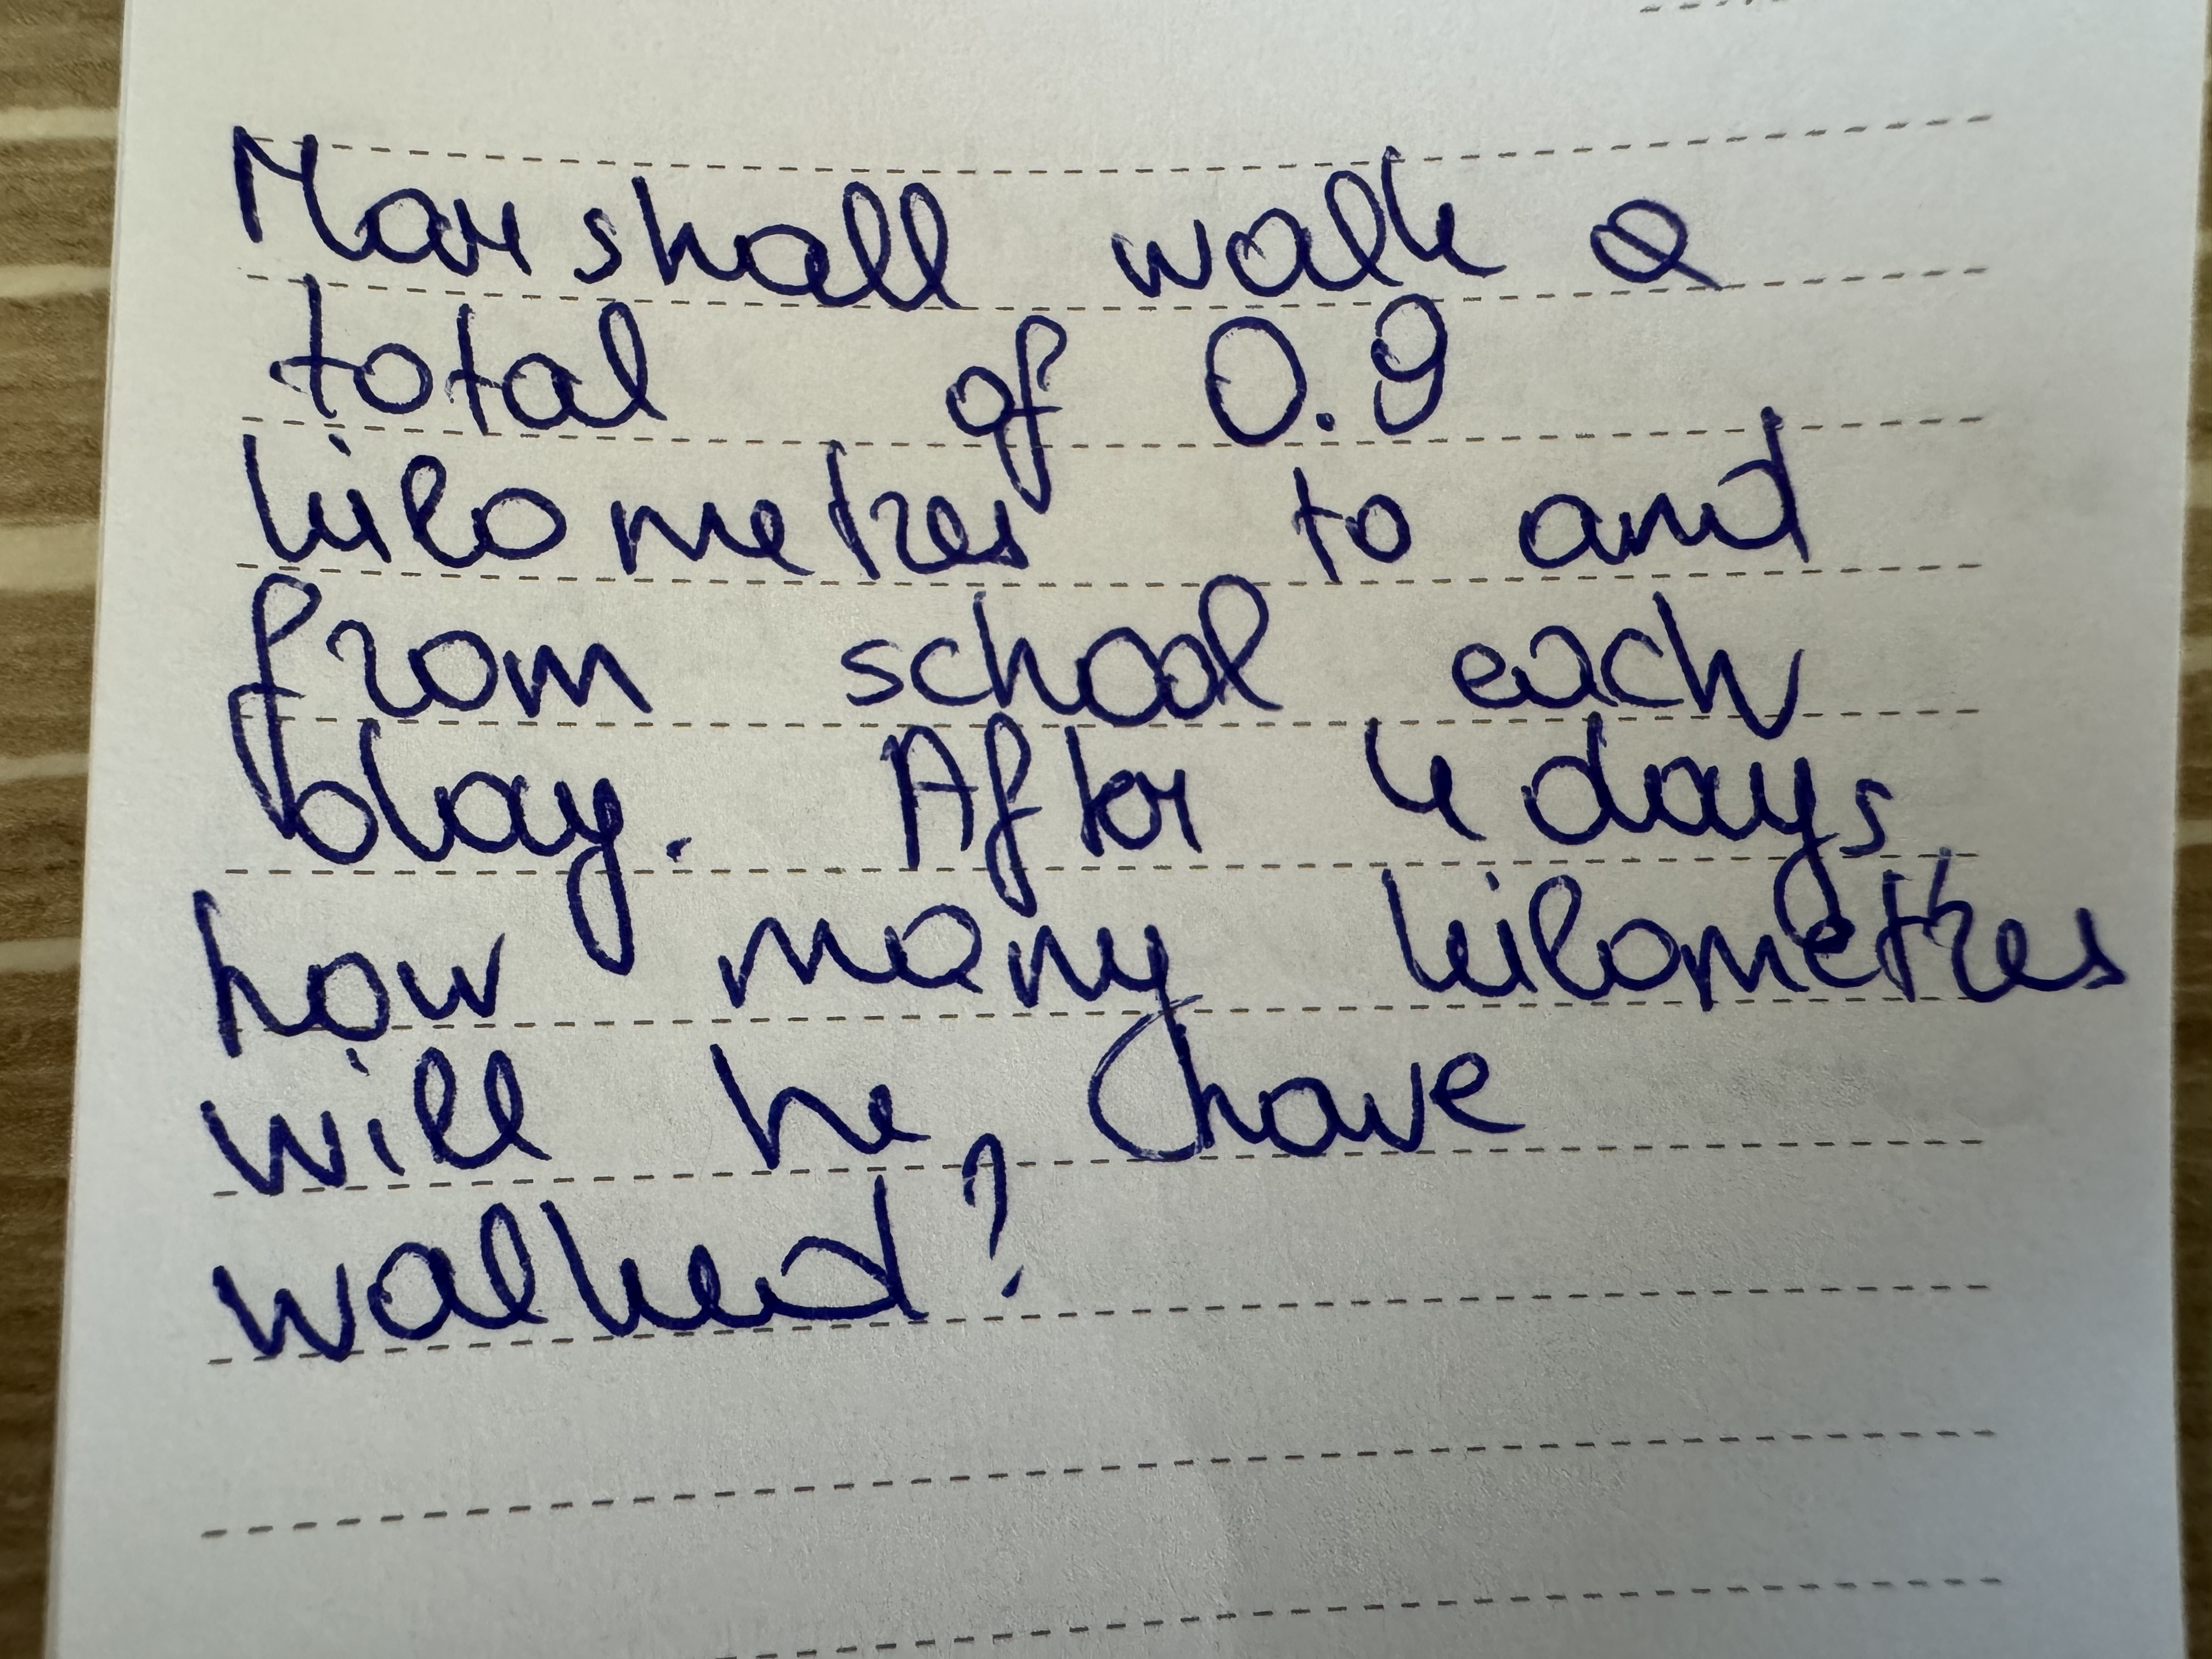 Marshall walk a
total of 0.9
kilometres to and
from school each
day. After 4 days
how many kilometres
will he have
walked?